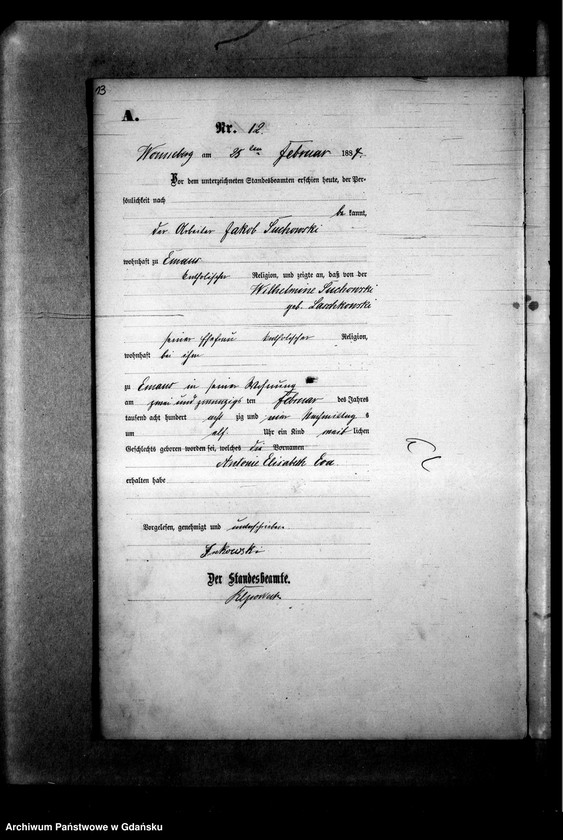 13
A.
Nr. 12
am 25 ten Februar 1884.
Vor dem unterzeichneten Standesbeamten erschien heute, der Per-
sönlichkeit nach
be kannt,
der Arbeiter Jakob Suchowski
wohnhaft zu Emaus
katholischer Religion, und zeigte an, daß von der
Wilhelmine Suchowski
geb. Laschkowski
seiner Ehefrau katholischer Religion,
wohnhaft bei ihm
zu Emaus in seiner Wohnung
am zwei und zwanzigs ten Februar des Jahres
tausend acht hundert acht zig und vier Nachmittag s
um elf Uhr ein Kind weib lichen
Geschlechts geboren worden sei, welches die Vornamen
Antonie Elisabeth Eva
erhalten habe
Vorgelesen, genehmigt und unterschrieben
Der Standesbeamte.
Archiwum Państwowe w Gdańsku